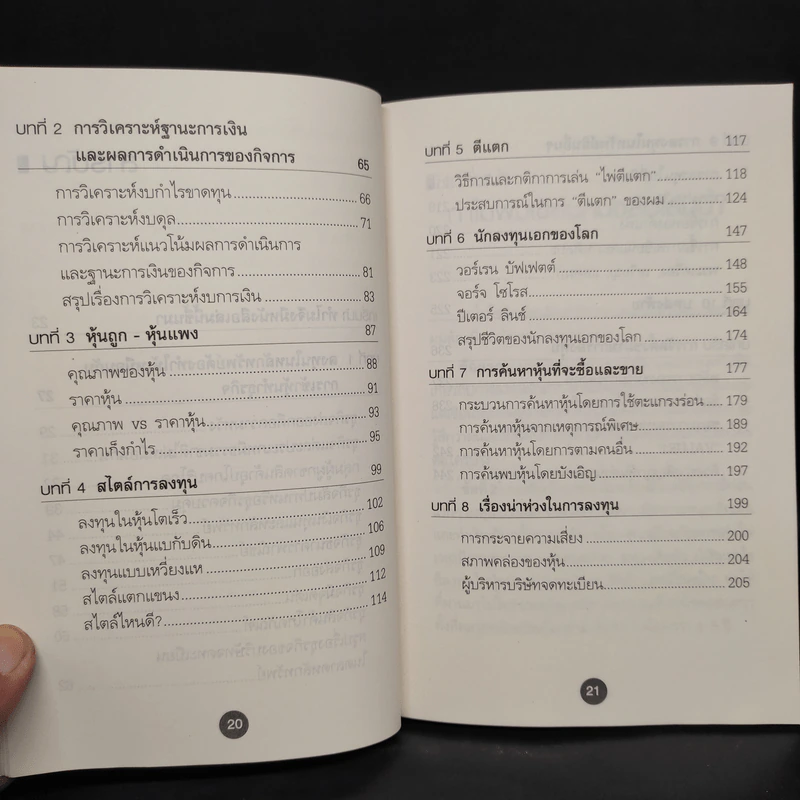 บทที่ 2 การวิเคราะห์ฐานะการเงิน
และผลการดำเนินการของกิจการ 65
การวิเคราะห์งบกำไรขาดทุน 66
การวิเคราะห์งบดุล 71
การวิเคราะห์แนวโน้มผลการดำเนินการ
และฐานะการเงินของกิจการ 81
สรุปเรื่องการวิเคราะห์งบการเงิน 83
บทที่ 3 หุ้นถูก - หุ้นแพง 87
คุณภาพของหุ้น 88
ราคาหุ้น 91
คุณภาพ vs ราคาหุ้น 93
ราคาเก็งกำไร 95
บทที่ 4 สไตล์การลงทุน 99
ลงทุนในหุ้นโตเร็ว 102
ลงทุนในหุ้นแบกับดิน 106
ลงทุนแบบเหวี่ยงแห 109
สไตล์แตกแขนง 112
สไตล์ไหนดี? 114
20
บทที่ 5 ตีแตก 117
วิธีการและกติกาการเล่น "ไพ่ตีแตก" 118
ประสบการณ์ในการ "ตีแตก" ของผม 124
บทที่ 6 นักลงทุนเอกของโลก 147
วอร์เรน บัฟเฟตต์ 148
จอร์จ โซโรส 155
ปีเตอร์ ลินซ์ 164
สรุปชีวิตของนักลงทุนเอกของโลก 174
บทที่ 7 การค้นหาหุ้นที่จะซื้อและขาย 177
กระบวนการค้นหาหุ้นโดยการใช้ตะแกรงร่อน 179
การค้นหาหุ้นจากเหตุการณ์พิเศษ 189
การค้นหาหุ้นโดยการตามคนอื่น 192
การค้นพบหุ้นโดยบังเอิญ 197
บทที่ 8 เรื่องน่าห่วงในการลงทุน 199
การกระจายความเสี่ยง 200
สภาพคล่องของหุ้น 204
ผู้บริหารบริษัทจดทะเบียน 205
21